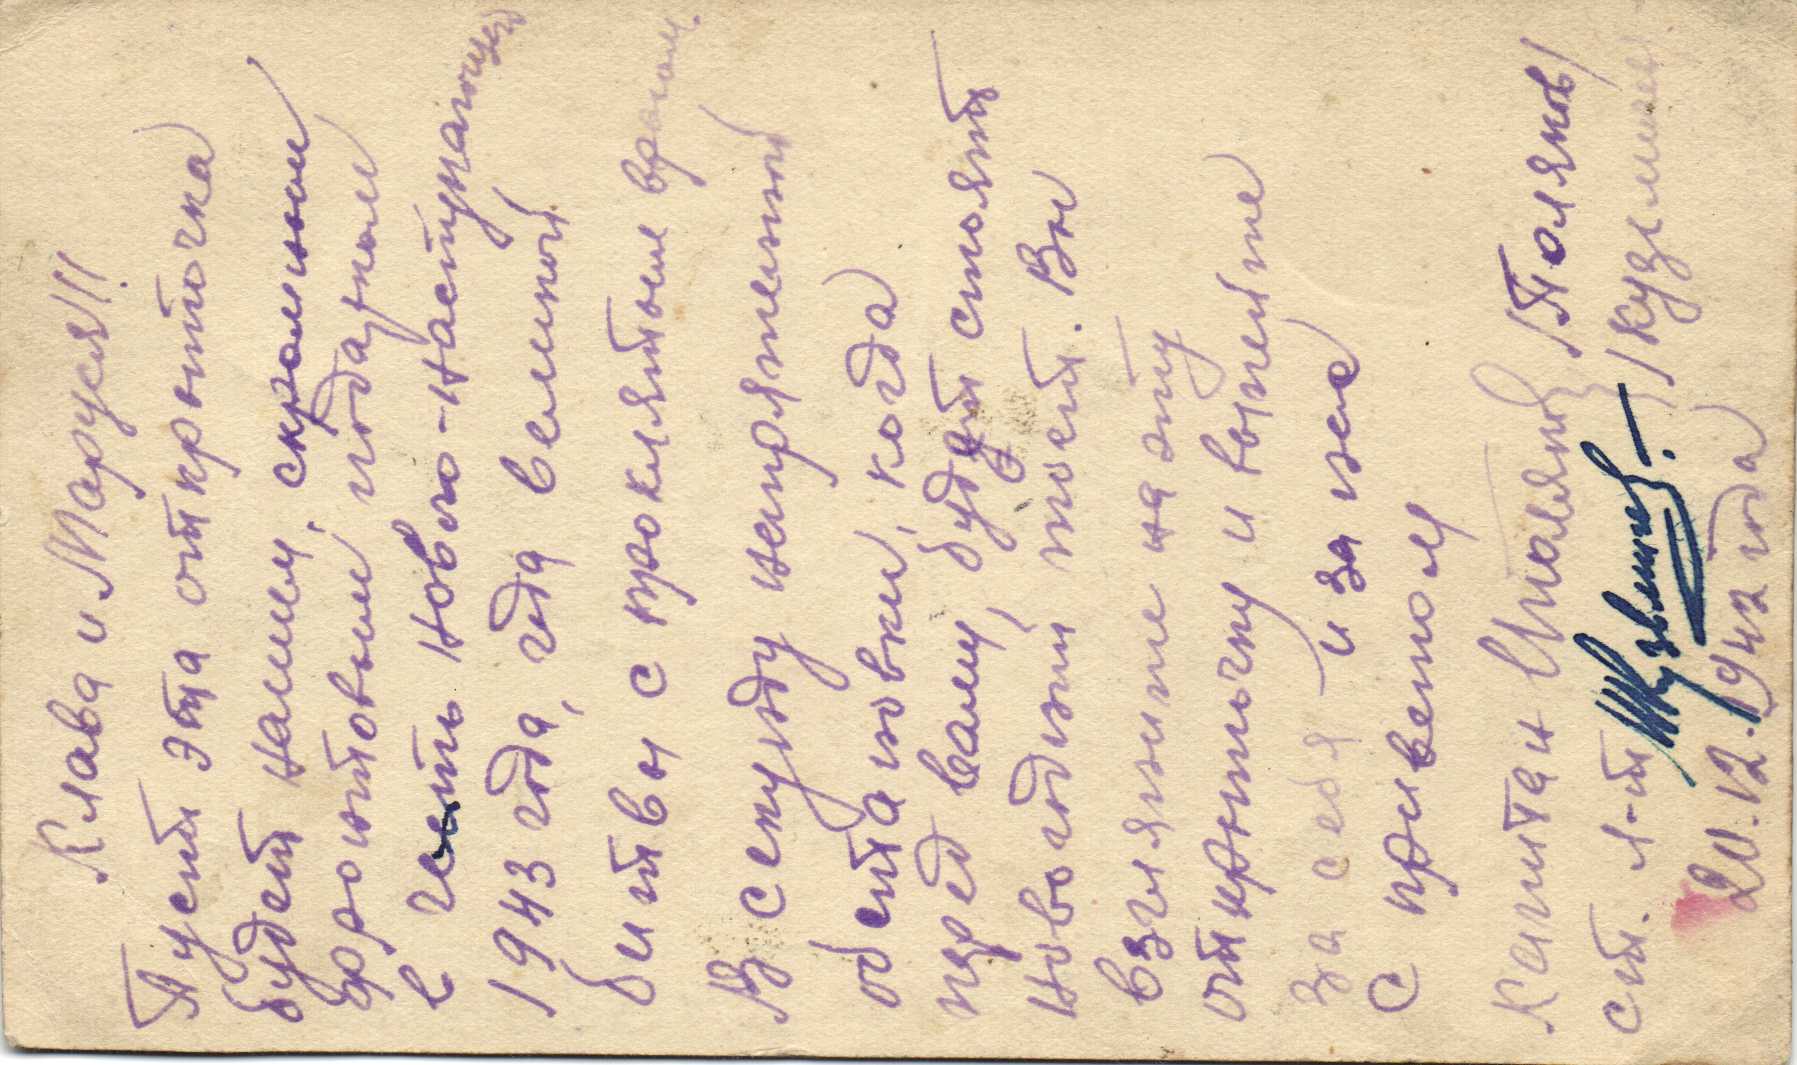 Клава и Маруся!!!
Пусть эта открыточка
будет нашим, скромным
фронтовым подарком
в честь Нового-наступающего
1943 года, года великой
битвы с проклятым врагом.
В секунду напряженной
обстановки, когда
перед вами, будут стоять
новогодний тост. Вы
взгляните на эту
открыточку и выпейте
за себя и за нас
С приветом
Капитан /Поляков/
ст. л-т /Кузьмин
20.12.1942 года